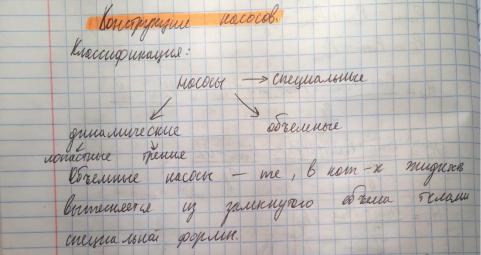 Конструкции насосов.
Классификация:
насосы → специальные
динамические объемные
лопастные трение
Объемные насосы – те, в кот-х жидкость
вытесняется из замкнутого объема телами
специальной формы.